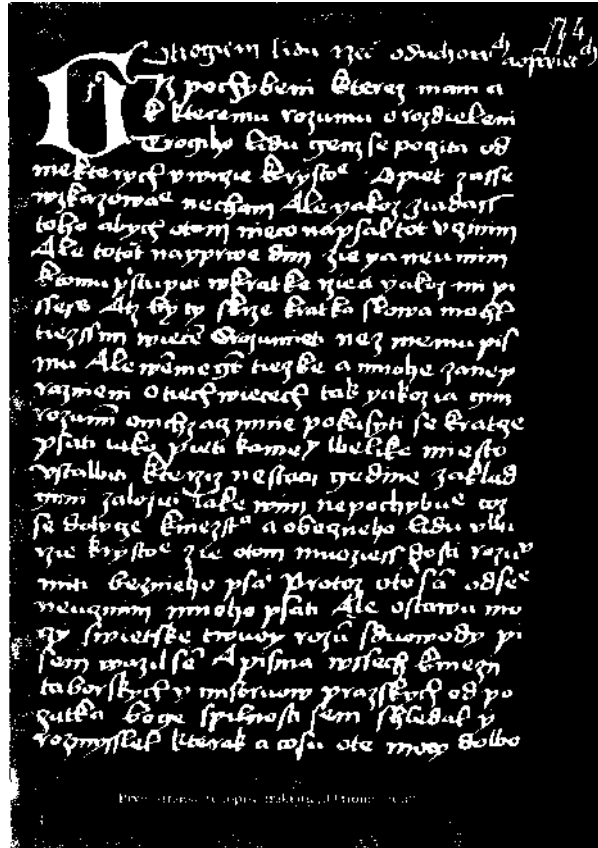 174
O trogiem lidu rzeč oduchowdch aoswietdch
Z pochybeni kterez mam a
k kteremu rozumu o rozdieleni
Trogiho lidu genz se pogita od
niekterych vwierzie krystoe Opiet zasse
wzkazowae necham Ale yakoz ziadass
toho abych otom nieco napsal tot vcinim
Ale totot nayprwe dim zie ya neumim
ktomu pstupiti wkratke rzieci yakoz mi pi
ssess Az by ty skrze kratka slowa mohl
tiezssim wiecem srozumieti nez memu pis
mu Ale tiezke a mnohe zanep
raznieni Otiech wiecech tak yakoz ia gim
rozumim pokusyti se kratce
psati iako pieti kamey welike miesto
vstawiti kterziz nestaci gedine zaklad
zaloziti Take nepochybue coz
se dotyce kniezsta a obecneho lidu
rzie krystoe zie otom muoziess dosti rozu
mieti bezmeho psa Protoz oto sa odsee
neuznam mnoho psati Ale ostawu mo
cy swietske rozu sduowody pi
sem wazil se A pisma wssech kniezi
taborskych y mistruow prazskych od po
czatka boge spilnosti sem shledal y
rozmysslel kterak a co su ote mocy